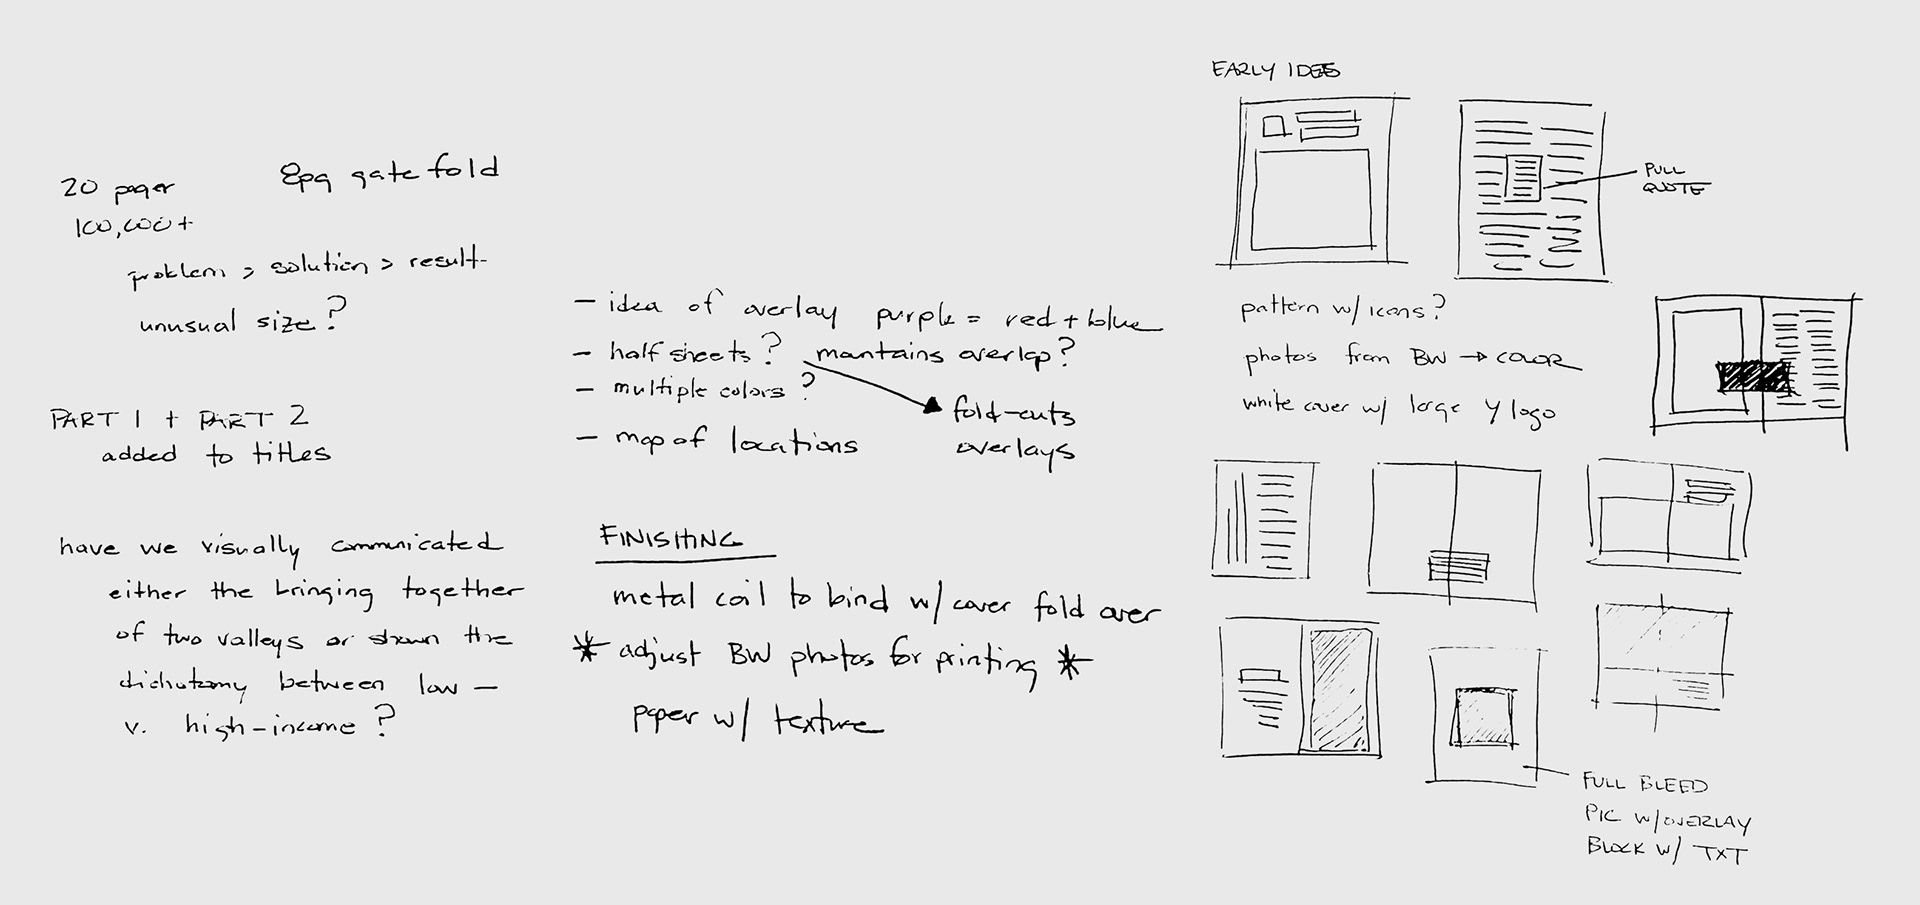 20 pager
8pg gate fold
100,000+
problem > solution > result
unusual size?
PART 1 + PART 2
added to titles
have we visually communicated
either the bringing together
of two valleys or shown the
dichotomy between low –
v. high-income?
– idea of overlay purple = red + blue
– half sheets? mantains overlap?
– multiple colors?
– map of locations
fold-outs
overlays
FINISHING
metal coil to bind w/ cover fold over
* adjust BW photos for printing *
paper w/ texture
EARLY IDEAS
PULL
QUOTE
pattern w/ icons?
photos from BW → COLOR
white cover w/ large Y logo
FULL BLEED
PIC w/ OVERLAY
BLOCK w/ TXT